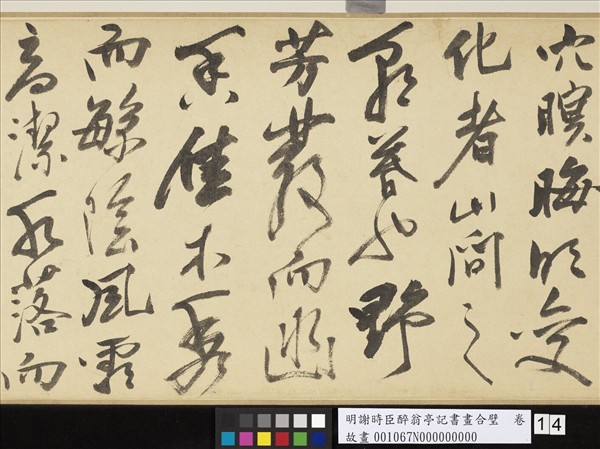 穴暝晦明變
化者山間之
朝暮也野
芳發而幽
香佳木秀
而繁陰風霜
高潔水落而
明謝時臣醉翁亭記書畫合璧　卷
故畫 001067N000000000
14